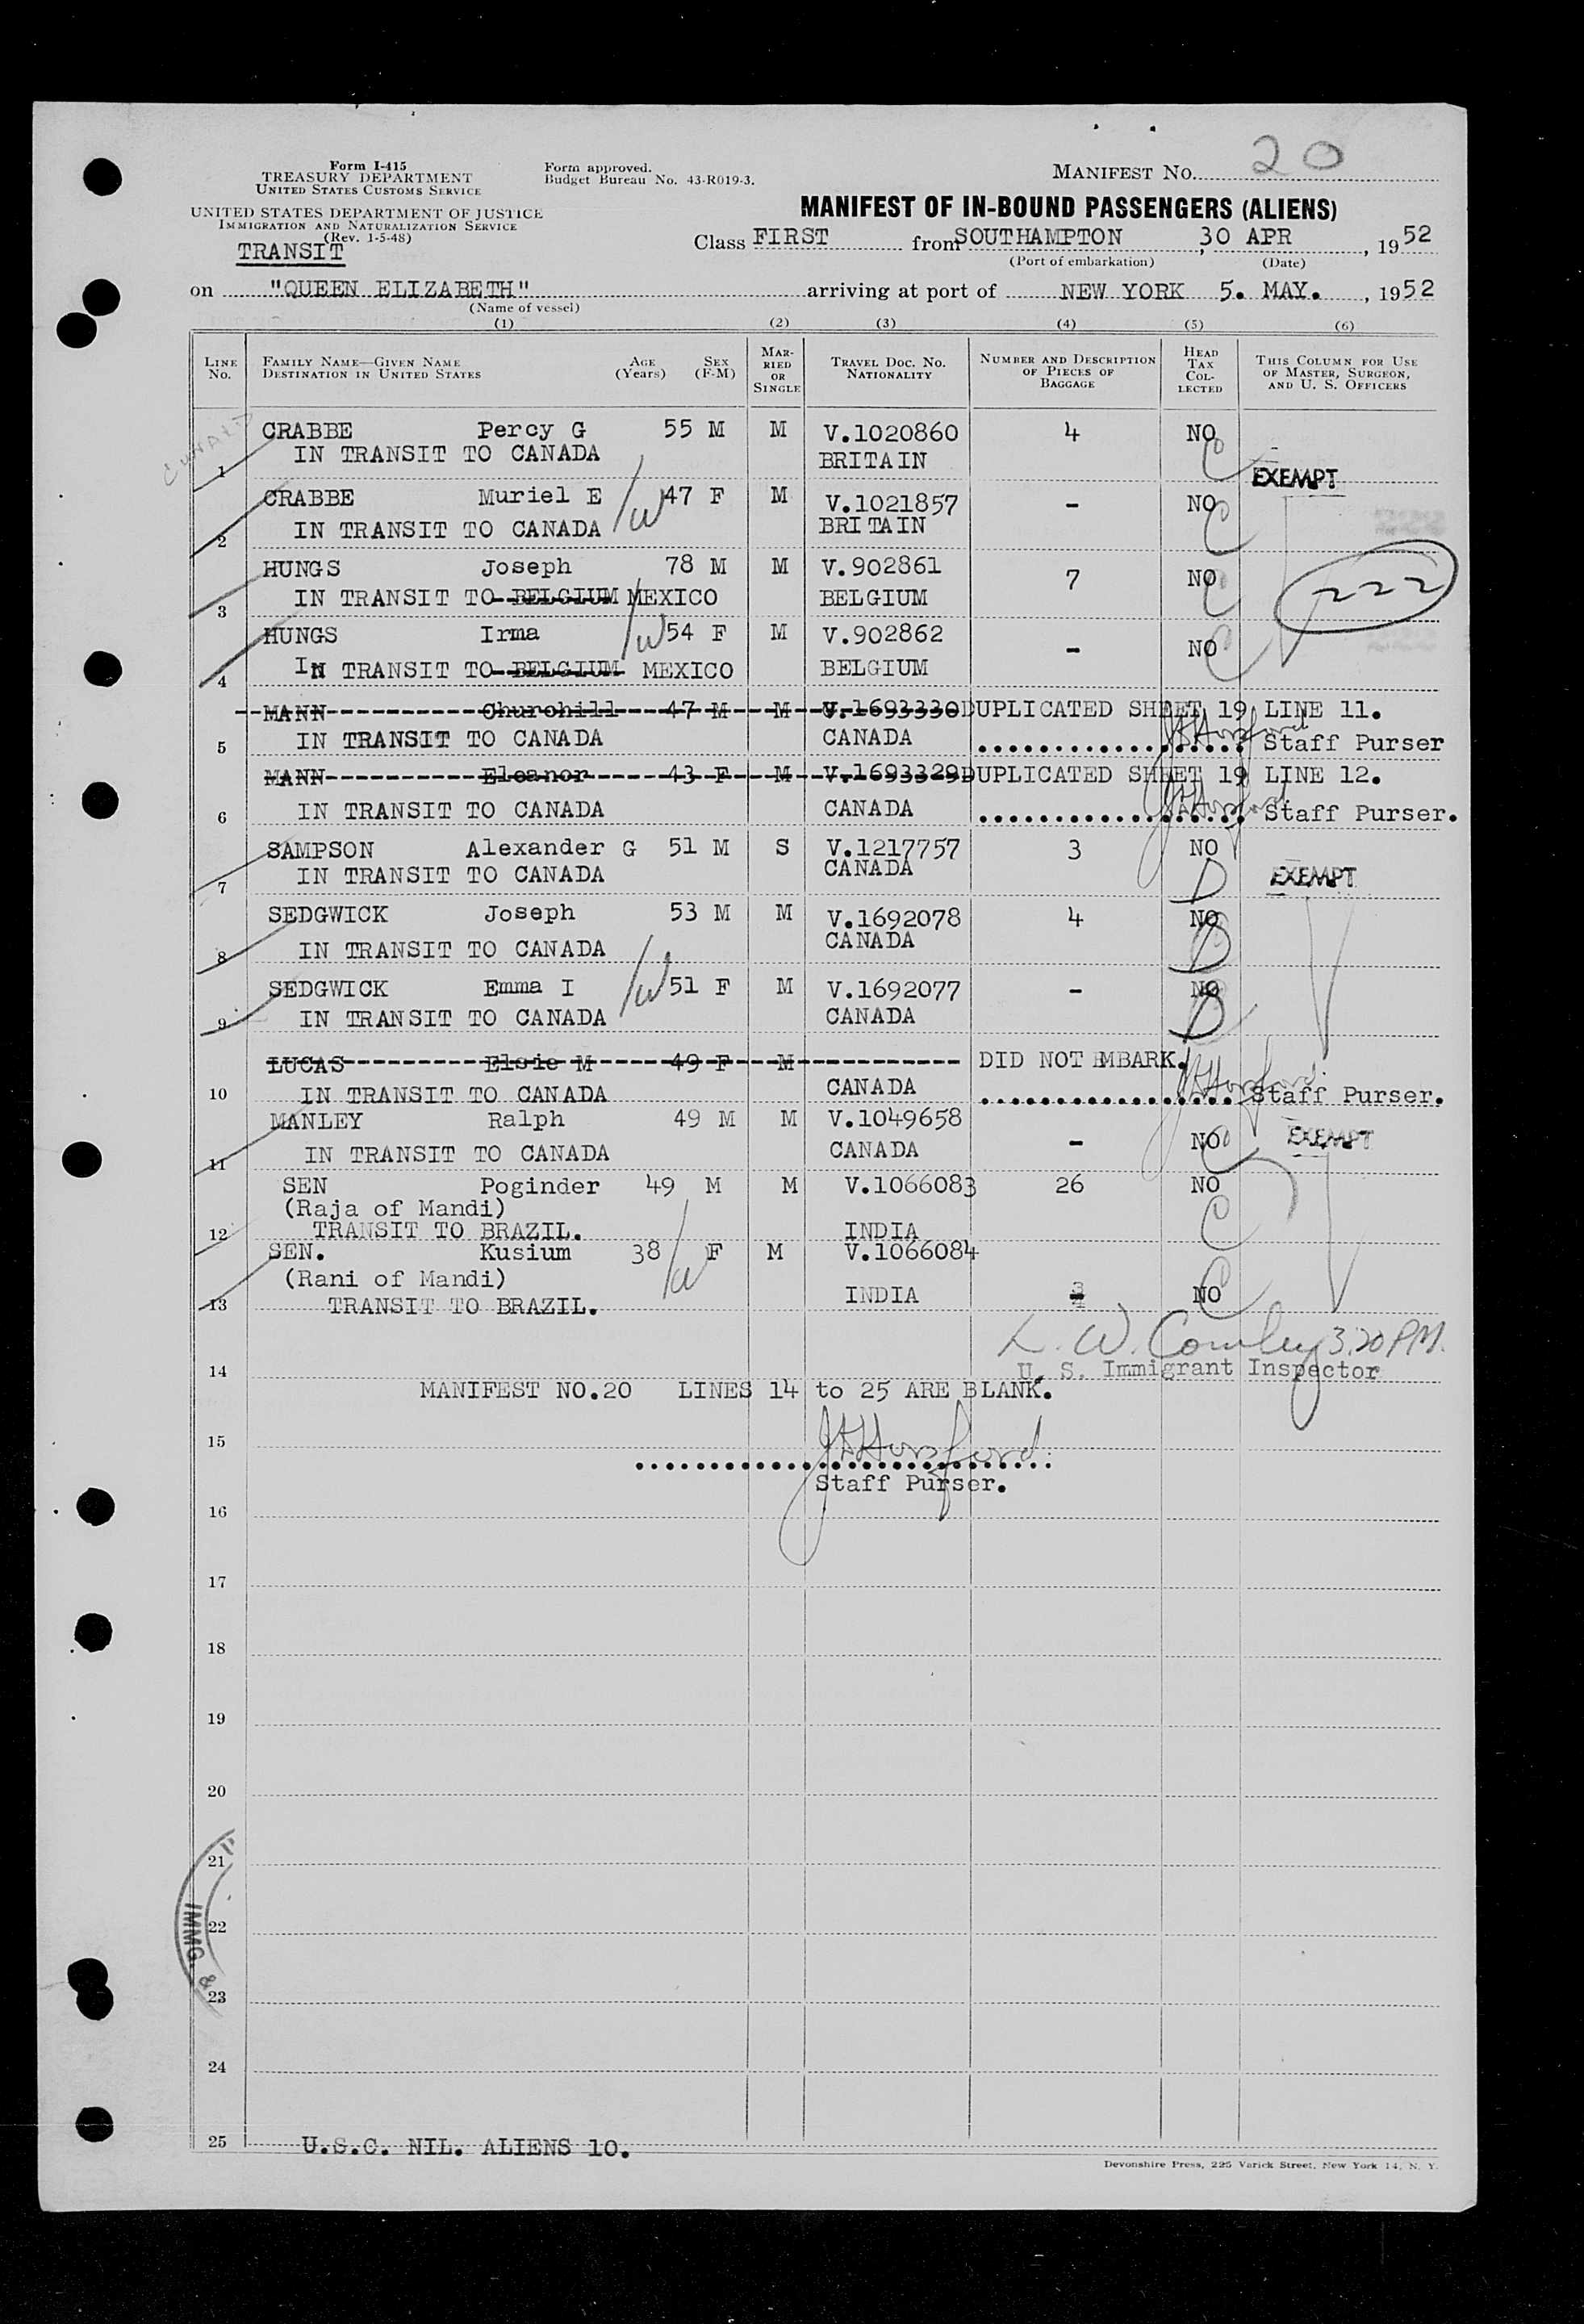 Form I-415
TREASURY DEPARTMENT
UNITED STATES CUSTOMS SERVICE
Form approved.
Budget Bureau No. 43-R019-3.
MANIFEST NO. 20
UNITED STATES DEPARTMENT OF JUSTICE
IMMIGRATION AND NATURALIZATION SERVICE
(Rev. 1-5-48)
TRANSIT
MANIFEST OF IN-BOUND PASSENGERS (ALIENS)
Class FIRST from SOUTHAMPTON, 30 APR, 1952
(Port of embarkation) (Date)
on "QUEEN ELIZABETH" arriving at port of NEW YORK 5. MAY., 1952
(Name of vessel)
(1) (2) (3) (4) (5) (6)
LINE No.
FAMILY NAME—GIVEN NAME
DESTINATION IN UNITED STATES
AGE (Years)
SEX (F-M)
MARRIED OR SINGLE
TRAVEL DOC. NO. NATIONALITY
NUMBER AND DESCRIPTION OF PIECES OF BAGGAGE
HEAD TAX COLLECTED
THIS COLUMN FOR USE OF MASTER, SURGEON, AND U. S. OFFICERS
CUNARD
CRABBE Percy G 55 M M V.1020860 4 NO C
1 IN TRANSIT TO CANADA BRITAIN EXEMPT
CRABBE Muriel E /W 47 F M V.1021857 - NO C
2 IN TRANSIT TO CANADA BRITAIN
HUNGS Joseph 78 M M V.902861 7 NO C 222
3 IN TRANSIT TO BELGIUM MEXICO BELGIUM
HUNGS Irma /W 54 F M V.902862 - NO C
4 IN TRANSIT TO BELGIUM MEXICO BELGIUM
MANN Churchill 47 M M V.1693330 DUPLICATED SHEET 19 LINE 11.
5 IN TRANSIT TO CANADA CANADA JHHorsford Staff Purser
MANN Eleanor 43 F M V.1693329 DUPLICATED SHEET 19 LINE 12.
6 IN TRANSIT TO CANADA CANADA Staff Purser.
SAMPSON Alexander G 51 M S V.1217757 3 NO D
7 IN TRANSIT TO CANADA CANADA EXEMPT
SEDGWICK Joseph 53 M M V.1692078 4 NO D
8 IN TRANSIT TO CANADA CANADA
SEDGWICK Emma I /W 51 F M V.1692077 - NO D
9 IN TRANSIT TO CANADA CANADA
LUCAS Elsie M 49 F M DID NOT EMBARK.
10 IN TRANSIT TO CANADA CANADA Staff Purser.
MANLEY Ralph 49 M M V.1049658 - NO C EXEMPT
11 IN TRANSIT TO CANADA CANADA
SEN Poginder 49 M M V.1066083 26 NO C
(Raja of Mandi)
12 TRANSIT TO BRAZIL. INDIA
SEN. Kusium 38 /W F M V.1066084
(Rani of Mandi)
13 TRANSIT TO BRAZIL. INDIA NO C
L. W. Comley 3.20 PM.
14 U. S. Immigrant Inspector
MANIFEST NO.20 LINES 14 to 25 ARE BLANK.
15 JHHorsford
Staff Purser.
16
17
18
19
20
21
22
IMMG. &
23
24
25 U.S.C. NIL. ALIENS 10.
Devonshire Press, 225 Varick Street, New York 14, N. Y.